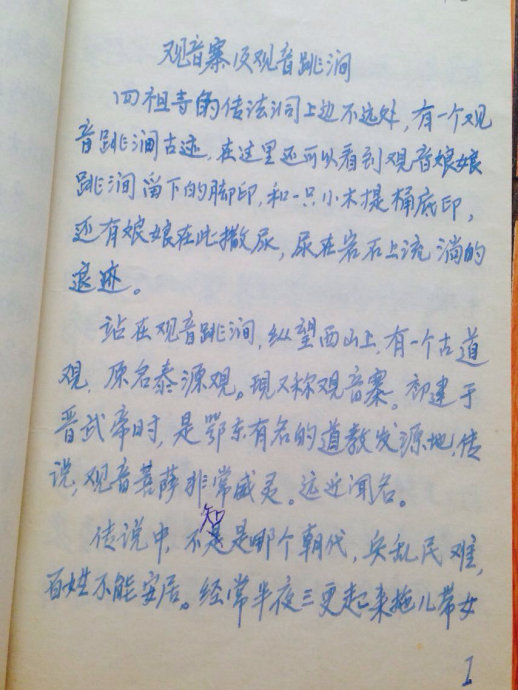 观音寨及观音跳涧
四祖寺的传法洞上边不远处,有一个观
音跳涧古迹,在这里还可以看到观音娘娘
跳涧留下的脚印,和一只小木提桶底印,
还有娘娘在此撒尿,尿在岩石上流淌的
痕迹。
站在观音跳涧,纵望西山上,有一个古道
观,原名泰源观。现又称观音寨。初建于
晋武帝时,是鄂东有名的道教发源地,传
说,观音菩萨非常威灵。远近闻名。
传说中,不知是哪个朝代,兵乱民难,
百姓不能安居。经常半夜三更起来拖儿带女
1